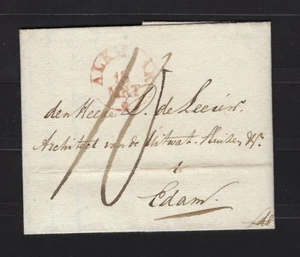 ALKMAAR
10
den Heere D. de Leeuw.
Architect van de Uitwat. Sluizen &c.
te
Edam.